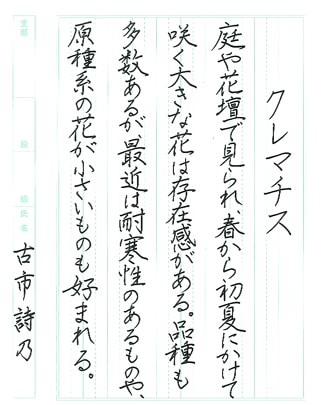 クレマチス
庭や花壇で見られ、春から初夏にかけて
咲く大きな花は存在感がある。品種も
多数あるが、最近は耐寒性のあるものや、
原種系の花が小さいものも好まれる。
支部
段
級
氏名
古市詩乃